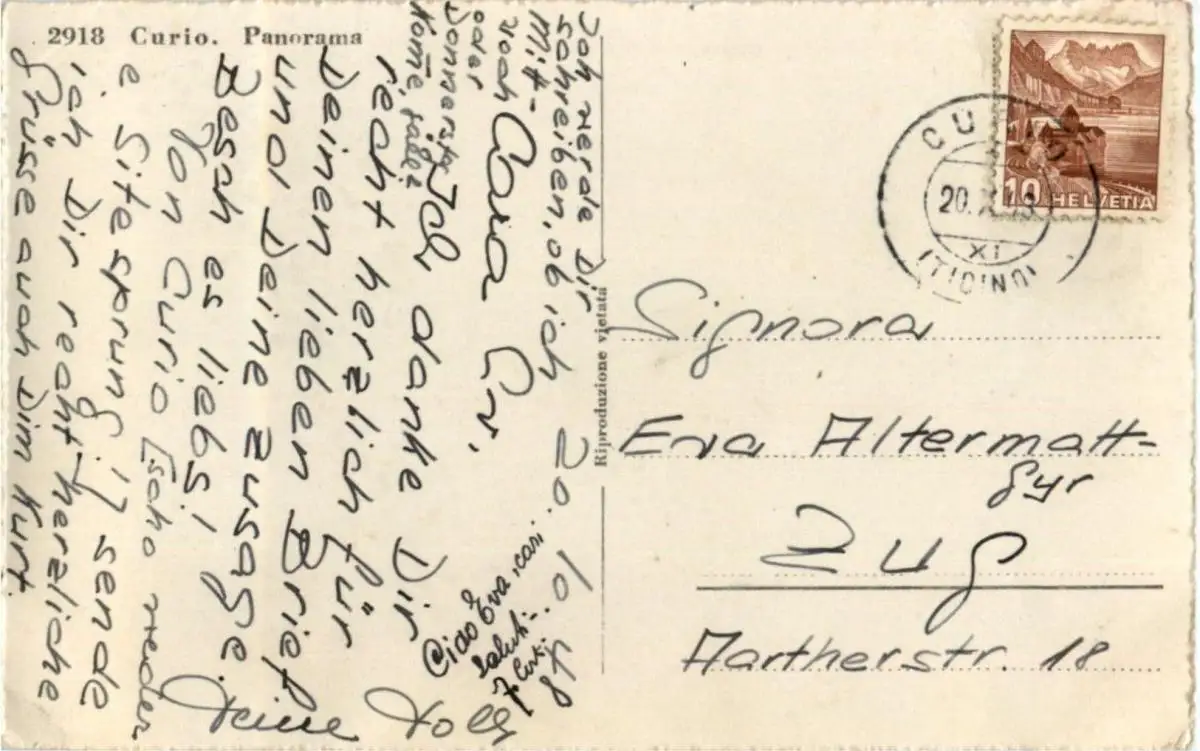 2918 Curio. Panorama
20. 10 48
Cara Ev,
Ich danke Dir
recht herzlich für
Deinen lieben Brief
und Deine Zusage.
Besch es liebs!
Von Curio
e Sitesprung! I send
ich Dir recht herzliche
Grüsse auch Dim Kurt.
Ich werde Dir
schreiben, ob ich
Mitt-
woch
oder
Donnerstag
Deine
Ciao Eva, cari
saluti
Riproduzione vietata
CURIO
20. X
XI
(TICINO)
10 HELVETIA
Signora
Eva Altermatt-
Gyr
Zug
Aartherstr. 18